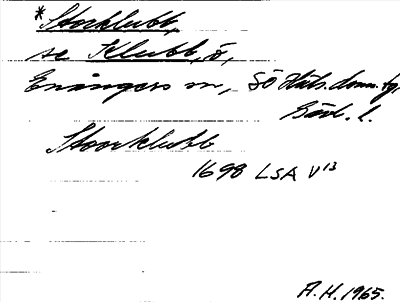 *Storklubb,
se Klubb, ö,
Enångers sn, SÖ Häls. doms. tg.
Gävl. l.
Stoorklubb
1698 LSA V13
A.H. 1965.